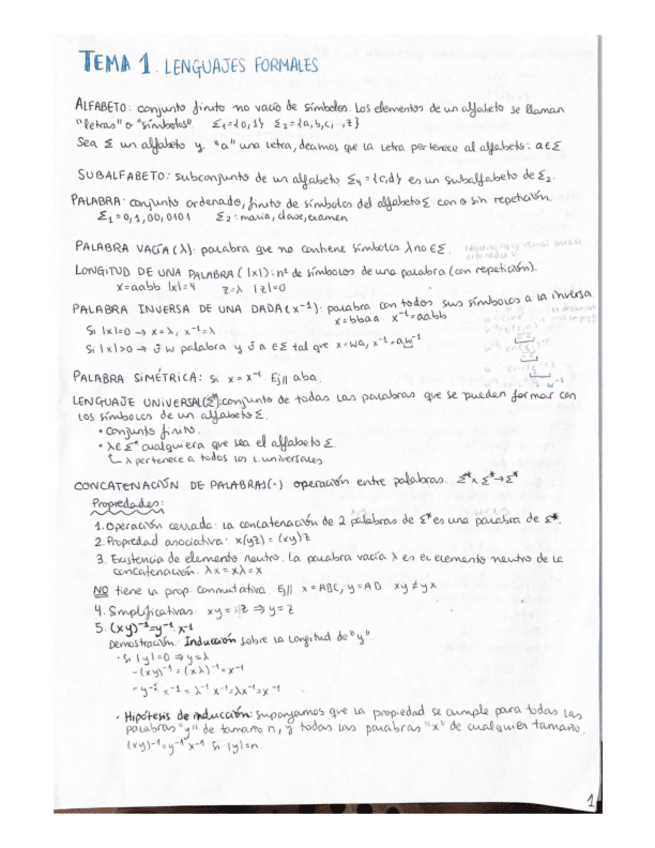 TEMA 1. LENGUAJES FORMALES
ALFABETO: conjunto finito no vacío de símbolos. Los elementos de un alfabeto se llaman
"letras" o "símbolos". Σ₁={0,1} Σ₂={a,b,c,..,z}
Sea Σ un alfabeto y "a" una letra, decimos que la letra pertenece al alfabeto: a∈Σ
SUBALFABETO: subconjunto de un alfabeto Σ₄={c,d} es un subalfabeto de Σ₂.
PALABRA: conjunto ordenado, finito de símbolos del alfabeto Σ con o sin repetición.
Σ₁=0,1,00,0101 Σ₂=maria, clase, examen
PALABRA VACÍA (λ): palabra que no contiene símbolos λ no ∈ Σ.
LONGITUD DE UNA PALABRA (|x|): nº de símbolos de una palabra (con repetición).
x=aabb |x|=4 z=λ |z|=0
PALABRA INVERSA DE UNA DADA (x⁻¹): palabra con todos sus símbolos a la inversa
x=bbaa x⁻¹=aabb
Si |x|=0 → x=λ, x⁻¹=λ
Si |x|>0 → ∃ w palabra y ∃ a∈Σ tal que x=wa, x⁻¹=aw⁻¹
PALABRA SIMÉTRICA: Si x=x⁻¹. Ej// aba.
LENGUAJE UNIVERSAL (Σ*): conjunto de todas las palabras que se pueden formar con
los símbolos de un alfabeto Σ.
• Conjunto finito.
• λ∈Σ* cualquiera que sea el alfabeto Σ.
↳ λ pertenece a todos los L.universales
CONCATENACIÓN DE PALABRAS (·): operación entre palabras. Σ*×Σ*→Σ*
Propiedades:
1. Operación cerrada: la concatenación de 2 palabras de Σ* es una palabra de Σ*.
2. Propiedad asociativa: x(yz)=(xy)z
3. Existencia de elemento neutro. La palabra vacía λ es el elemento neutro de la
concatenación. λx=xλ=x
NO tiene la prop. conmutativa. Ej// x=ABC, y=AD xy≠yx
4. Simplificativas: xy= z ⇒ y=z
5. (xy)⁻¹=y⁻¹·x⁻¹
Demostración. Inducción sobre la longitud de "y".
• Si |y|=0 ⇒ y=λ
-(xy)⁻¹=(xλ)⁻¹=x⁻¹
-y⁻¹x⁻¹=λ⁻¹x⁻¹=λx⁻¹=x⁻¹
• Hipótesis de inducción: supongamos que la propiedad se cumple para todas las
palabras "y" de tamaño n, y todas las palabras "x" de cualquier tamaño.
(xy)⁻¹=y⁻¹x⁻¹ si |y|=n.
1